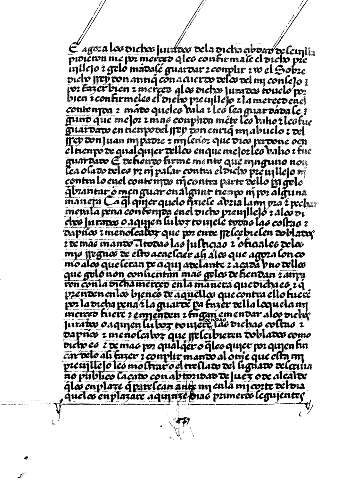 E agora los dichos jurados dela dicha cibdat de seuilla
pidieron me por merçed que les confirmase el dicho pre
uillejo & gelo mandase guardar & conplir & yo el sobre
dicho rey don anrriq con acuerdo delos del mi consejo &
por fazer bien & merçed alos dichos jurados touelo por
bien & confirmeles el dicho preuillejo & la merçed en el
contenida & mando que les vala & les sea guardada se
gund que mejor & mas conplida mente les valio & les fue
guardado en tienpo del rey don enrriq mi abuelo & del
rey don juan mi padre & mi señor que dios perdone o en
el tienpo de qual quier dellos en que mejor les valio & fue
guardado E defiendo firme mente que ninguno non
sea osado deles yr nj pasar contra el dicho preuillejo nj
contra lo en el contenido nj contra parte dello por gelo
qbrantar o menguar en algunt tienpo nj por alguna
manera Ca ql quier quelo fiziese abria la mi yra & pechar
me ya la pena contenida en el dicho preuillejo & alos di
chos jurados o a quien su boz touiese todas las costas &
daños & menoscabos que por ende rresçibiesen doblados
& de mas mando A todas las justiçias & ofiçiales delos
mis rregnos do esto acaesçier asi alos que agora son co
mo alos que seran de aqui adelante & a cada vno dellos
que gelo non consientan mas quelos defiendan & anpa
ren conla dicha merçed en la manera que dicha es & q
prenden en los bienes de aquellos que contra ello fuere
por la dicha pena & la guarden para fazer della lo quela mi
merçed fuere & emienden & fagan emendar alos dichos
jurados o a quien su boz touiere delas dichas costas &
daños & menoscabos que rresçibieren doblados como
dicho es & de mas por qual quier o qles quier por quien fin
car delo asi fazer & conplir mando al ome que esta mi
preuillejo les mostrare o el treslado del signado de escriua
no publico sacado con abtoridad de juez o de alcalde
que los enplaze que parescan ante mi en la mi corte del dia
que los enplazare a quinze dias primeros seguientes